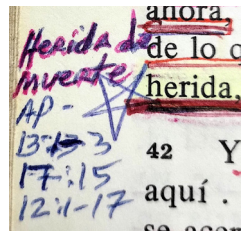 Herida de
muerte
AP-
13:13-3
17:15
12:1-17
ahora,
de lo q
herida,
42 Y
aquí .